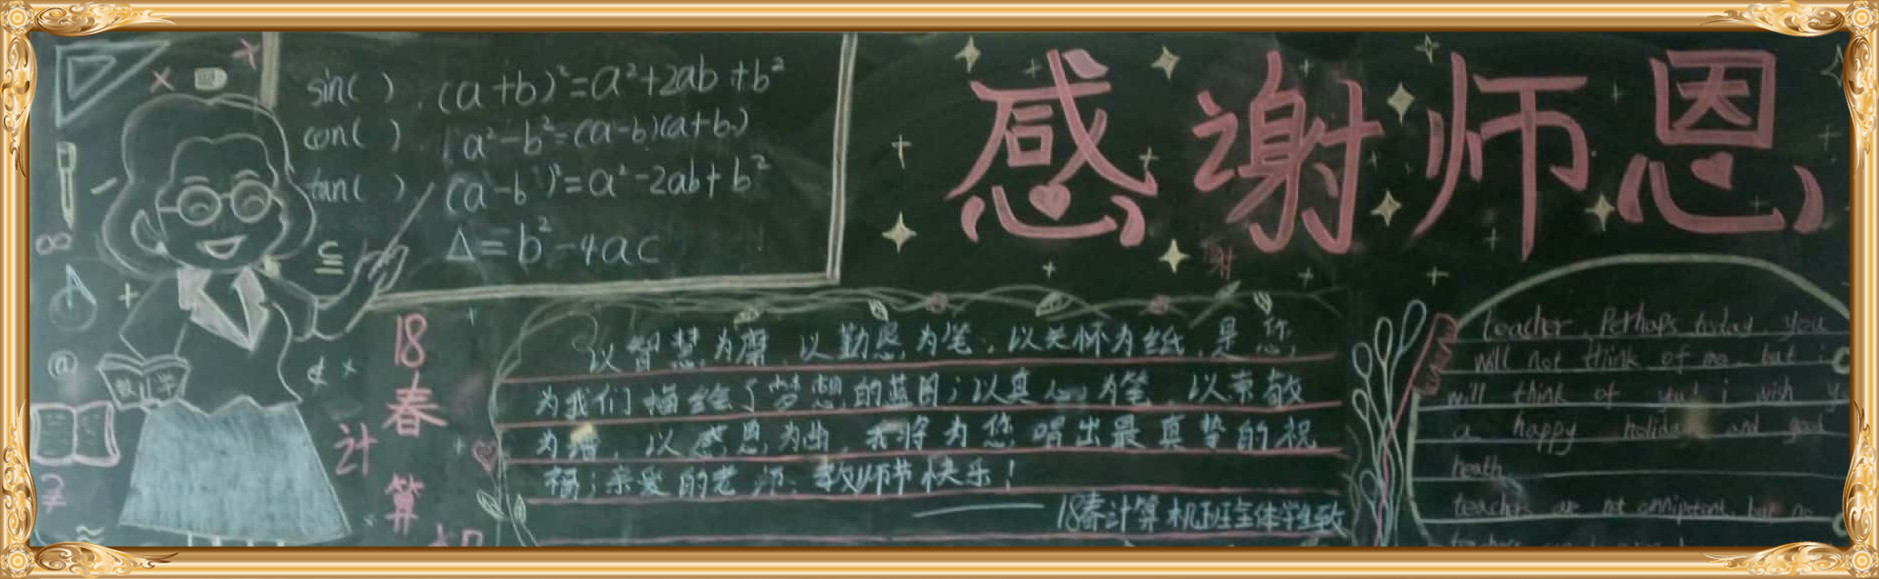 sin( ), (a+b)²=a²+2ab+b²
con( ), a²-b²=(a-b)(a+b)
tan( ), (a-b)²=a²-2ab+b²
Δ=b²-4ac
感谢师恩
谢
⊆
∞
@
数学
18春
计算机
以智慧为墨,以勤恳为笔,以关怀为纸,是您,
为我们描绘了梦想的蓝图;以真心为笔,以崇敬
为谱,以感恩为曲,我将为您唱出最真挚的祝
福;亲爱的老师:教师节快乐!
——18春计算机班全体学生致
teacher, Perhaps today, you
will not think of me but i
will think of you! i wish y
a happy holiday and good
heath
teachers are not omnipotent, but no